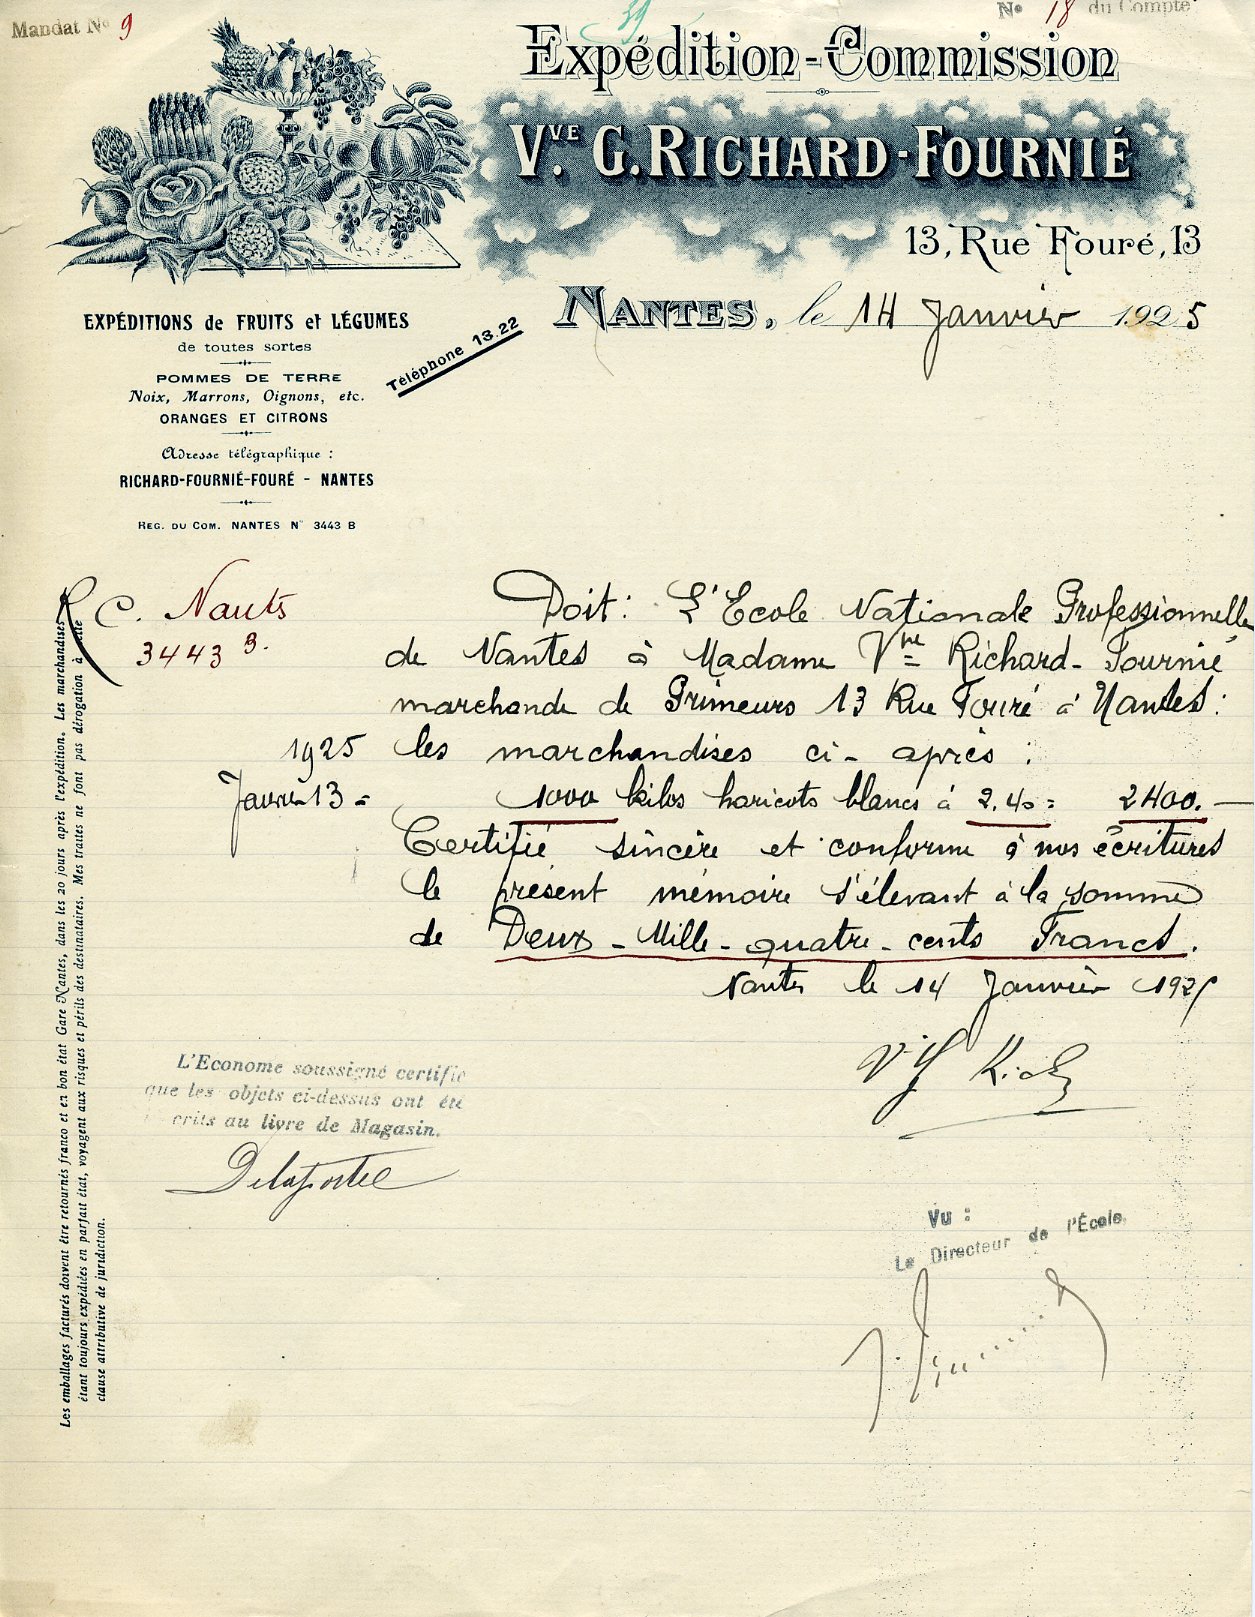 Mandat N° 9
39
N° 18 du Compte
Expédition-Commission
Vve. G. RICHARD-FOURNIÉ
13, Rue Fouré, 13
NANTES, le 14 Janvier 1925
EXPÉDITIONS de FRUITS et LÉGUMES
de toutes sortes
POMMES DE TERRE
Noix, Marrons, Oignons, etc.
ORANGES ET CITRONS
Adresse télégraphique :
RICHARD-FOURNIÉ-FOURÉ - NANTES
REG. DU COM. NANTES N° 3443 B
Téléphone 13.22
R C. Nants
3443 B.
Doit : L'Ecole Nationale Professionnelle
de Nantes à Madame Vve Richard-Fournié
marchande de Primeurs 13 Rue Fouré à Nantes :
1925 les marchandises ci-après :
Janvier 13 = 1000 kilos haricots blancs à 2.40 = 2400.—
Certifié sincère et conforme à nos écritures
le présent mémoire s'élevant à la somme
de Deux-Mille-quatre-cents Francs.
Nantes le 14 Janvier 1925
L'Econome soussigné certifie
que les objets ci-dessus ont été
crits au livre de Magasin.
Delaporte
Vu :
Le Directeur de l'École,
Les emballages facturés doivent être retournés franco et en bon état Gare Nantes, dans les 20 jours après l'expédition. Les marchandises
étant toujours expédiées en parfait état, voyagent aux risques et périls des destinataires. Mes traites ne font pas dérogation à cette
clause attributive de juridiction.